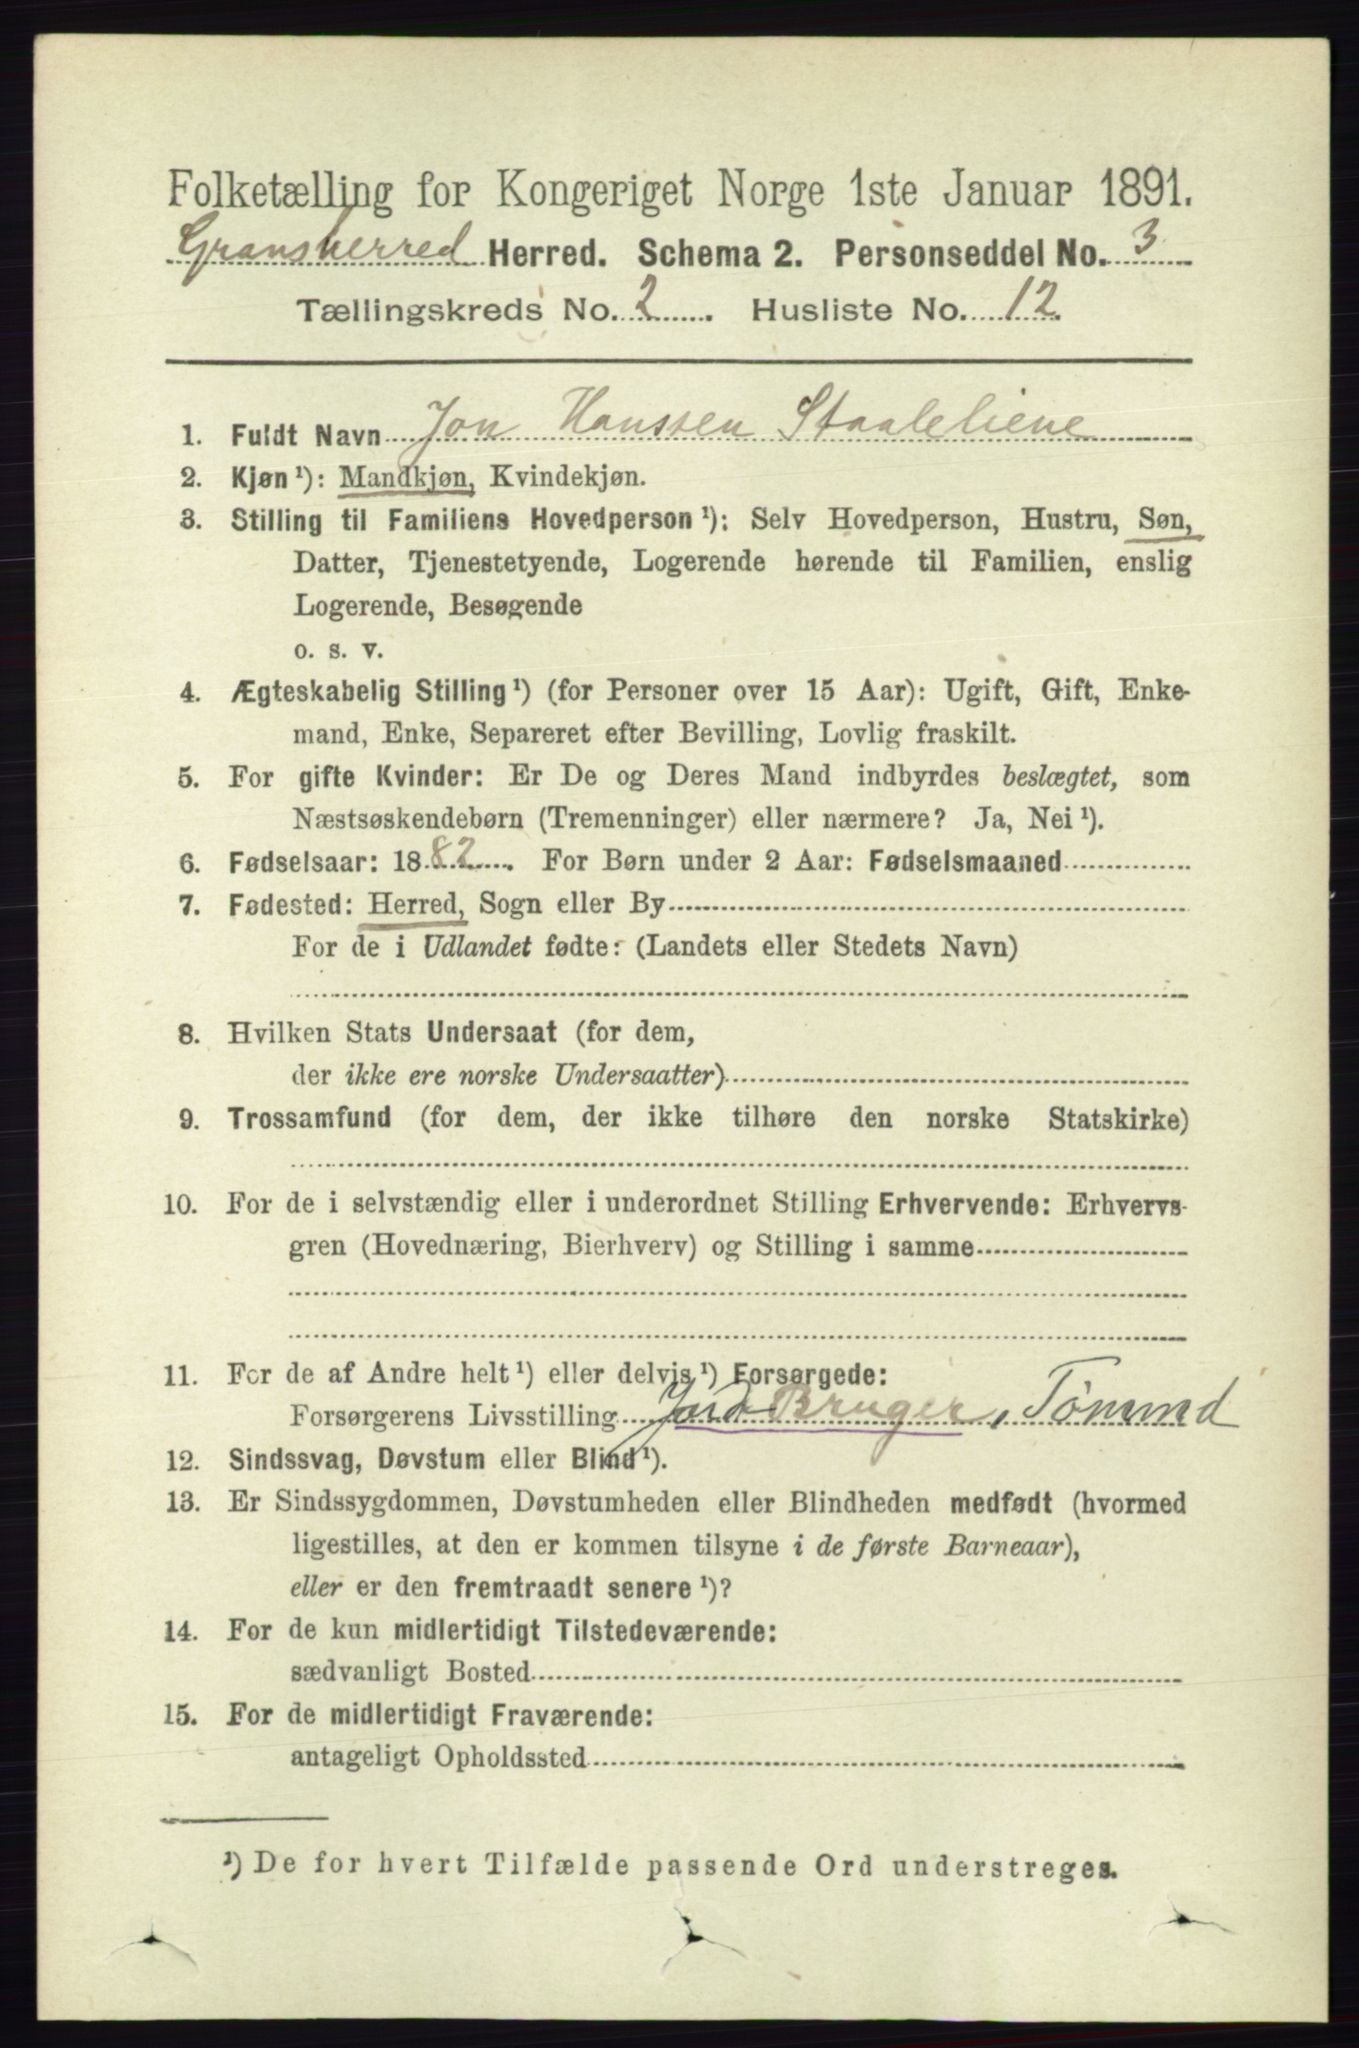 Folketælling for Kongeriget Norge 1ste Januar 1891.
Gransherred Herred. Schema 2. Personseddel No. 3
Tællingskreds No. 2. Husliste No. 12.
1. Fuldt Navn Jon Hanssen Staaleliene
2. Kjøn ¹): Mandkjøn, Kvindekjøn.
3. Stilling til Familiens Hovedperson ¹): Selv Hovedperson, Hustru, Søn,
Datter, Tjenestetyende, Logerende hørende til Familien, enslig
Logerende, Besøgende
o. s. v.
4. Ægteskabelig Stilling ¹) (for Personer over 15 Aar): Ugift, Gift, Enke-
mand, Enke, Separeret efter Bevilling, Lovlig fraskilt.
5. For gifte Kvinder: Er De og Deres Mand indbyrdes beslægtet, som
Næstsøskendebørn (Tremenninger) eller nærmere? Ja, Nei ¹).
6. Fødselsaar: 1882. For Børn under 2 Aar: Fødselsmaaned
7. Fødested: Herred, Sogn eller By
For de i Udlandet fødte: (Landets eller Stedets Navn)
8. Hvilken Stats Undersaat (for dem,
der ikke ere norske Undersaatter)
9. Trossamfund (for dem, der ikke tilhøre den norske Statskirke)
10. For de i selvstændig eller i underordnet Stilling Erhvervende: Erhvervs-
gren (Hovednæring, Bierhverv) og Stilling i samme
11. For de af Andre helt ¹) eller delvis ¹) Forsørgede:
Forsørgerens Livsstilling Jord Bruger, Tømmd
12. Sindssvag, Døvstum eller Blind ¹).
13. Er Sindssygdommen, Døvstumheden eller Blindheden medfødt (hvormed
ligestilles, at den er kommen tilsyne i de første Barneaar),
eller er den fremtraadt senere ¹)?
14. For de kun midlertidigt Tilstedeværende:
sædvanligt Bosted
15. For de midlertidigt Fraværende:
antageligt Opholdssted
¹) De for hvert Tilfælde passende Ord understreges.